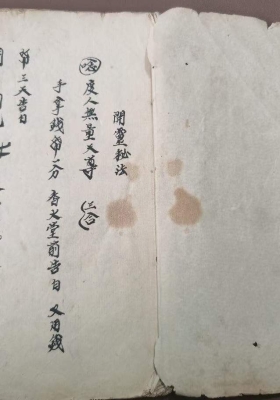 開靈秘法
度人無量天尊 三合
手拿錢帛一分 香火堂前告白 又用錢
第三天告白